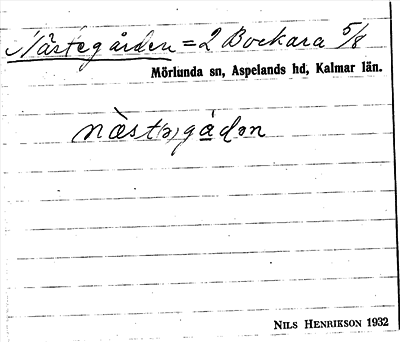 Nästegården = 2 Bockara 5/8
Mörlunda sn, Aspelands hd, Kalmar län.
næ̀st(ə)gådən
NILS HENRIKSON 1932